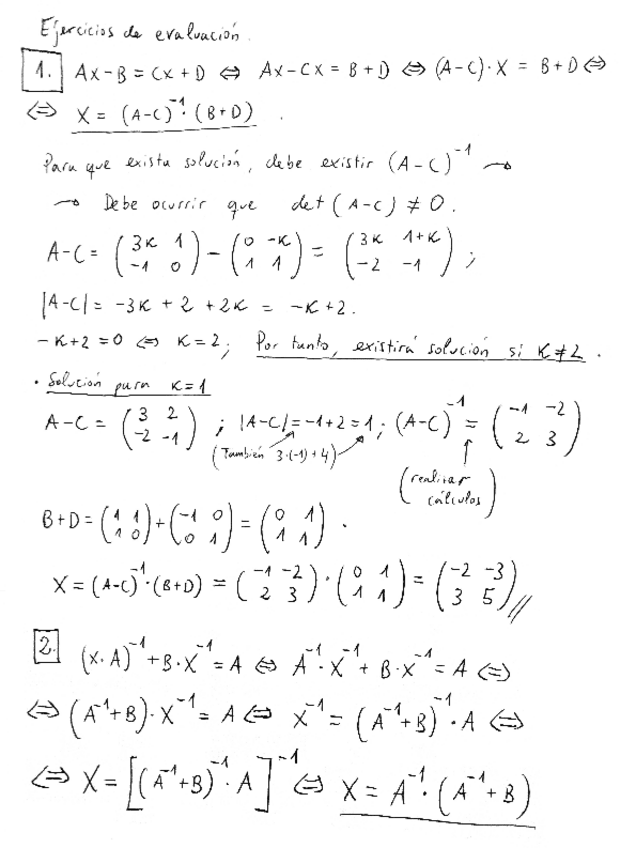 Ejercicios de evaluación.
1. AX-B = CX+D ⇔ AX-CX = B+D ⇔ (A-C)·X = B+D ⇔
⇔ X = (A-C)⁻¹·(B+D).
Para que exista solución, debe existir (A-C)⁻¹ →
→ Debe ocurrir que det(A-C) ≠ 0.
A-C = (3K 1; -1 0) - (0 -K; 1 1) = (3K 1+K; -2 -1);
|A-C| = -3K + 2 + 2K = -K+2.
-K+2=0 ⇔ K=2; Por tanto, existirá solución si K≠2.
· Solución para K=1
A-C = (3 2; -2 -1); |A-C| = -1+2 = 1; (A-C)⁻¹ = (-1 -2; 2 3)
(También 3·(-1)+4)
(realizar cálculos)
B+D = (1 1; 1 0) + (-1 0; 0 1) = (0 1; 1 1).
X = (A-C)⁻¹·(B+D) = (-1 -2; 2 3)·(0 1; 1 1) = (-2 -3; 3 5)//
2. (X·A)⁻¹ + B·X⁻¹ = A ⇔ A⁻¹·X⁻¹ + B·X⁻¹ = A ⇔
⇔ (A⁻¹+B)·X⁻¹ = A ⇔ X⁻¹ = (A⁻¹+B)⁻¹·A ⇔
⇔ X = [(A⁻¹+B)⁻¹·A]⁻¹ ⇔ X = A⁻¹·(A⁻¹+B)